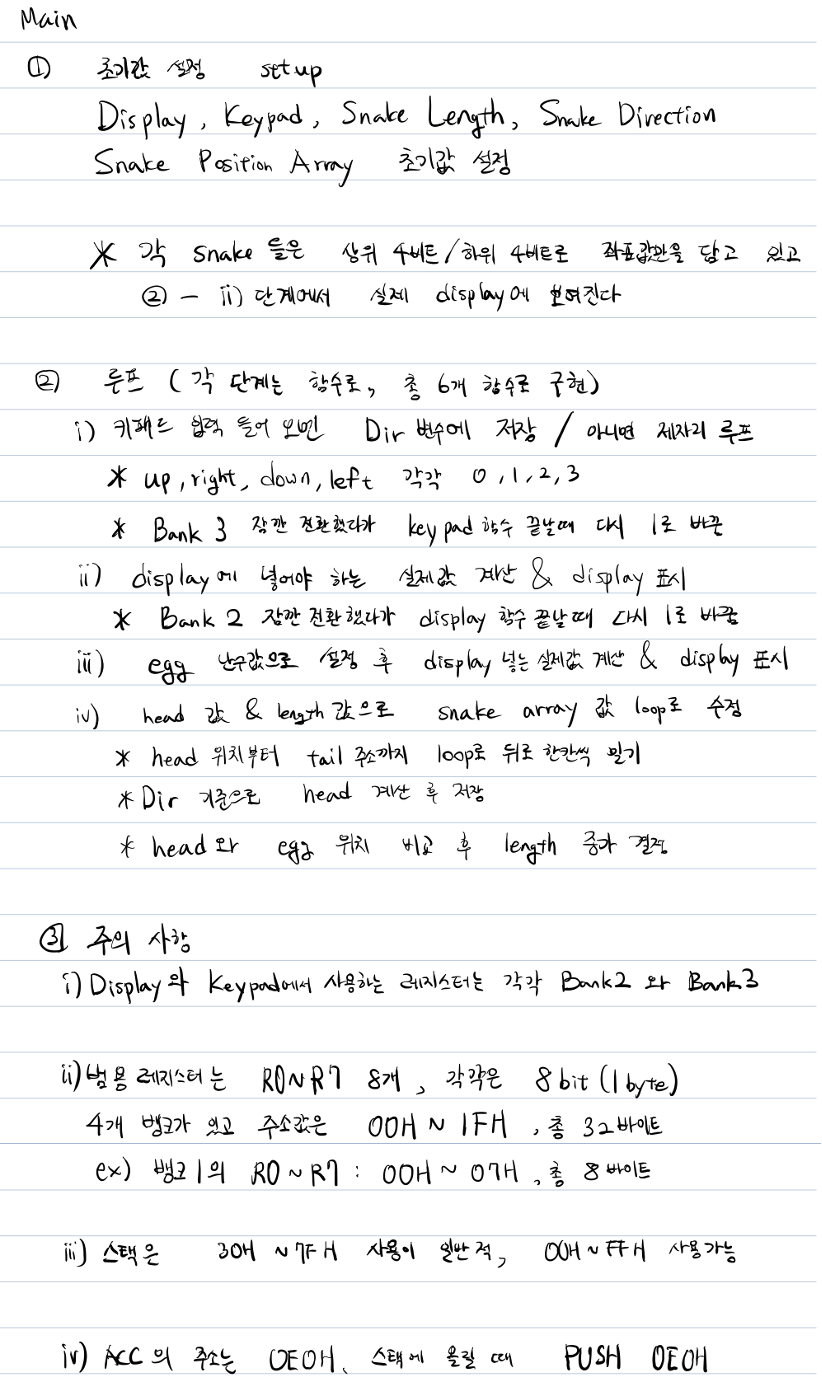 Main
① 초기값 설정 setup
Display, Keypad, Snake Length, Snake Direction
Snake Position Array 초기값 설정
* 각 snake 들은 상위 4비트/하위 4비트로 좌표값만을 담고 있고
② - ii) 단계에서 실제 display에 보여진다
② 루프 (각 단계는 함수로, 총 6개 함수로 구현)
i) 키패드 입력 들어오면 Dir 변수에 저장 / 아니면 제자리 루프
* up, right, down, left 각각 0, 1, 2, 3
* Bank 3 잠깐 전환했다가 keypad 함수 끝날때 다시 1로 바꿈
ii) display에 넣어야 하는 실제값 계산 & display 표시
* Bank 2 잠깐 전환했다가 display 함수 끝날때 다시 1로 바꿈
iii) egg 난수값으로 설정 후 display 넣는 실제값 계산 & display 표시
iv) head 값 & length 값으로 snake array 값 loop로 수정
* head 위치부터 tail 주소까지 loop로 뒤로 한칸씩 밀기
* Dir 기준으로 head 계산 후 저장
* head와 egg 위치 비교 후 length 증가 결정
③ 주의 사항
i) Display와 Keypad에서 사용하는 레지스터는 각각 Bank2 와 Bank3
ii) 범용 레지스터는 R0~R7 8개, 각각은 8bit (1byte)
4개 뱅크가 있고 주소값은 00H ~ 1FH, 총 32바이트
ex) 뱅크 1의 R0 ~ R7 : 00H ~ 07H, 총 8바이트
iii) 스택은 30H ~ 7FH 사용이 일반적, 00H ~ FFH 사용가능
iv) ACC의 주소는 0E0H, 스택에 올릴 때 PUSH 0E0H